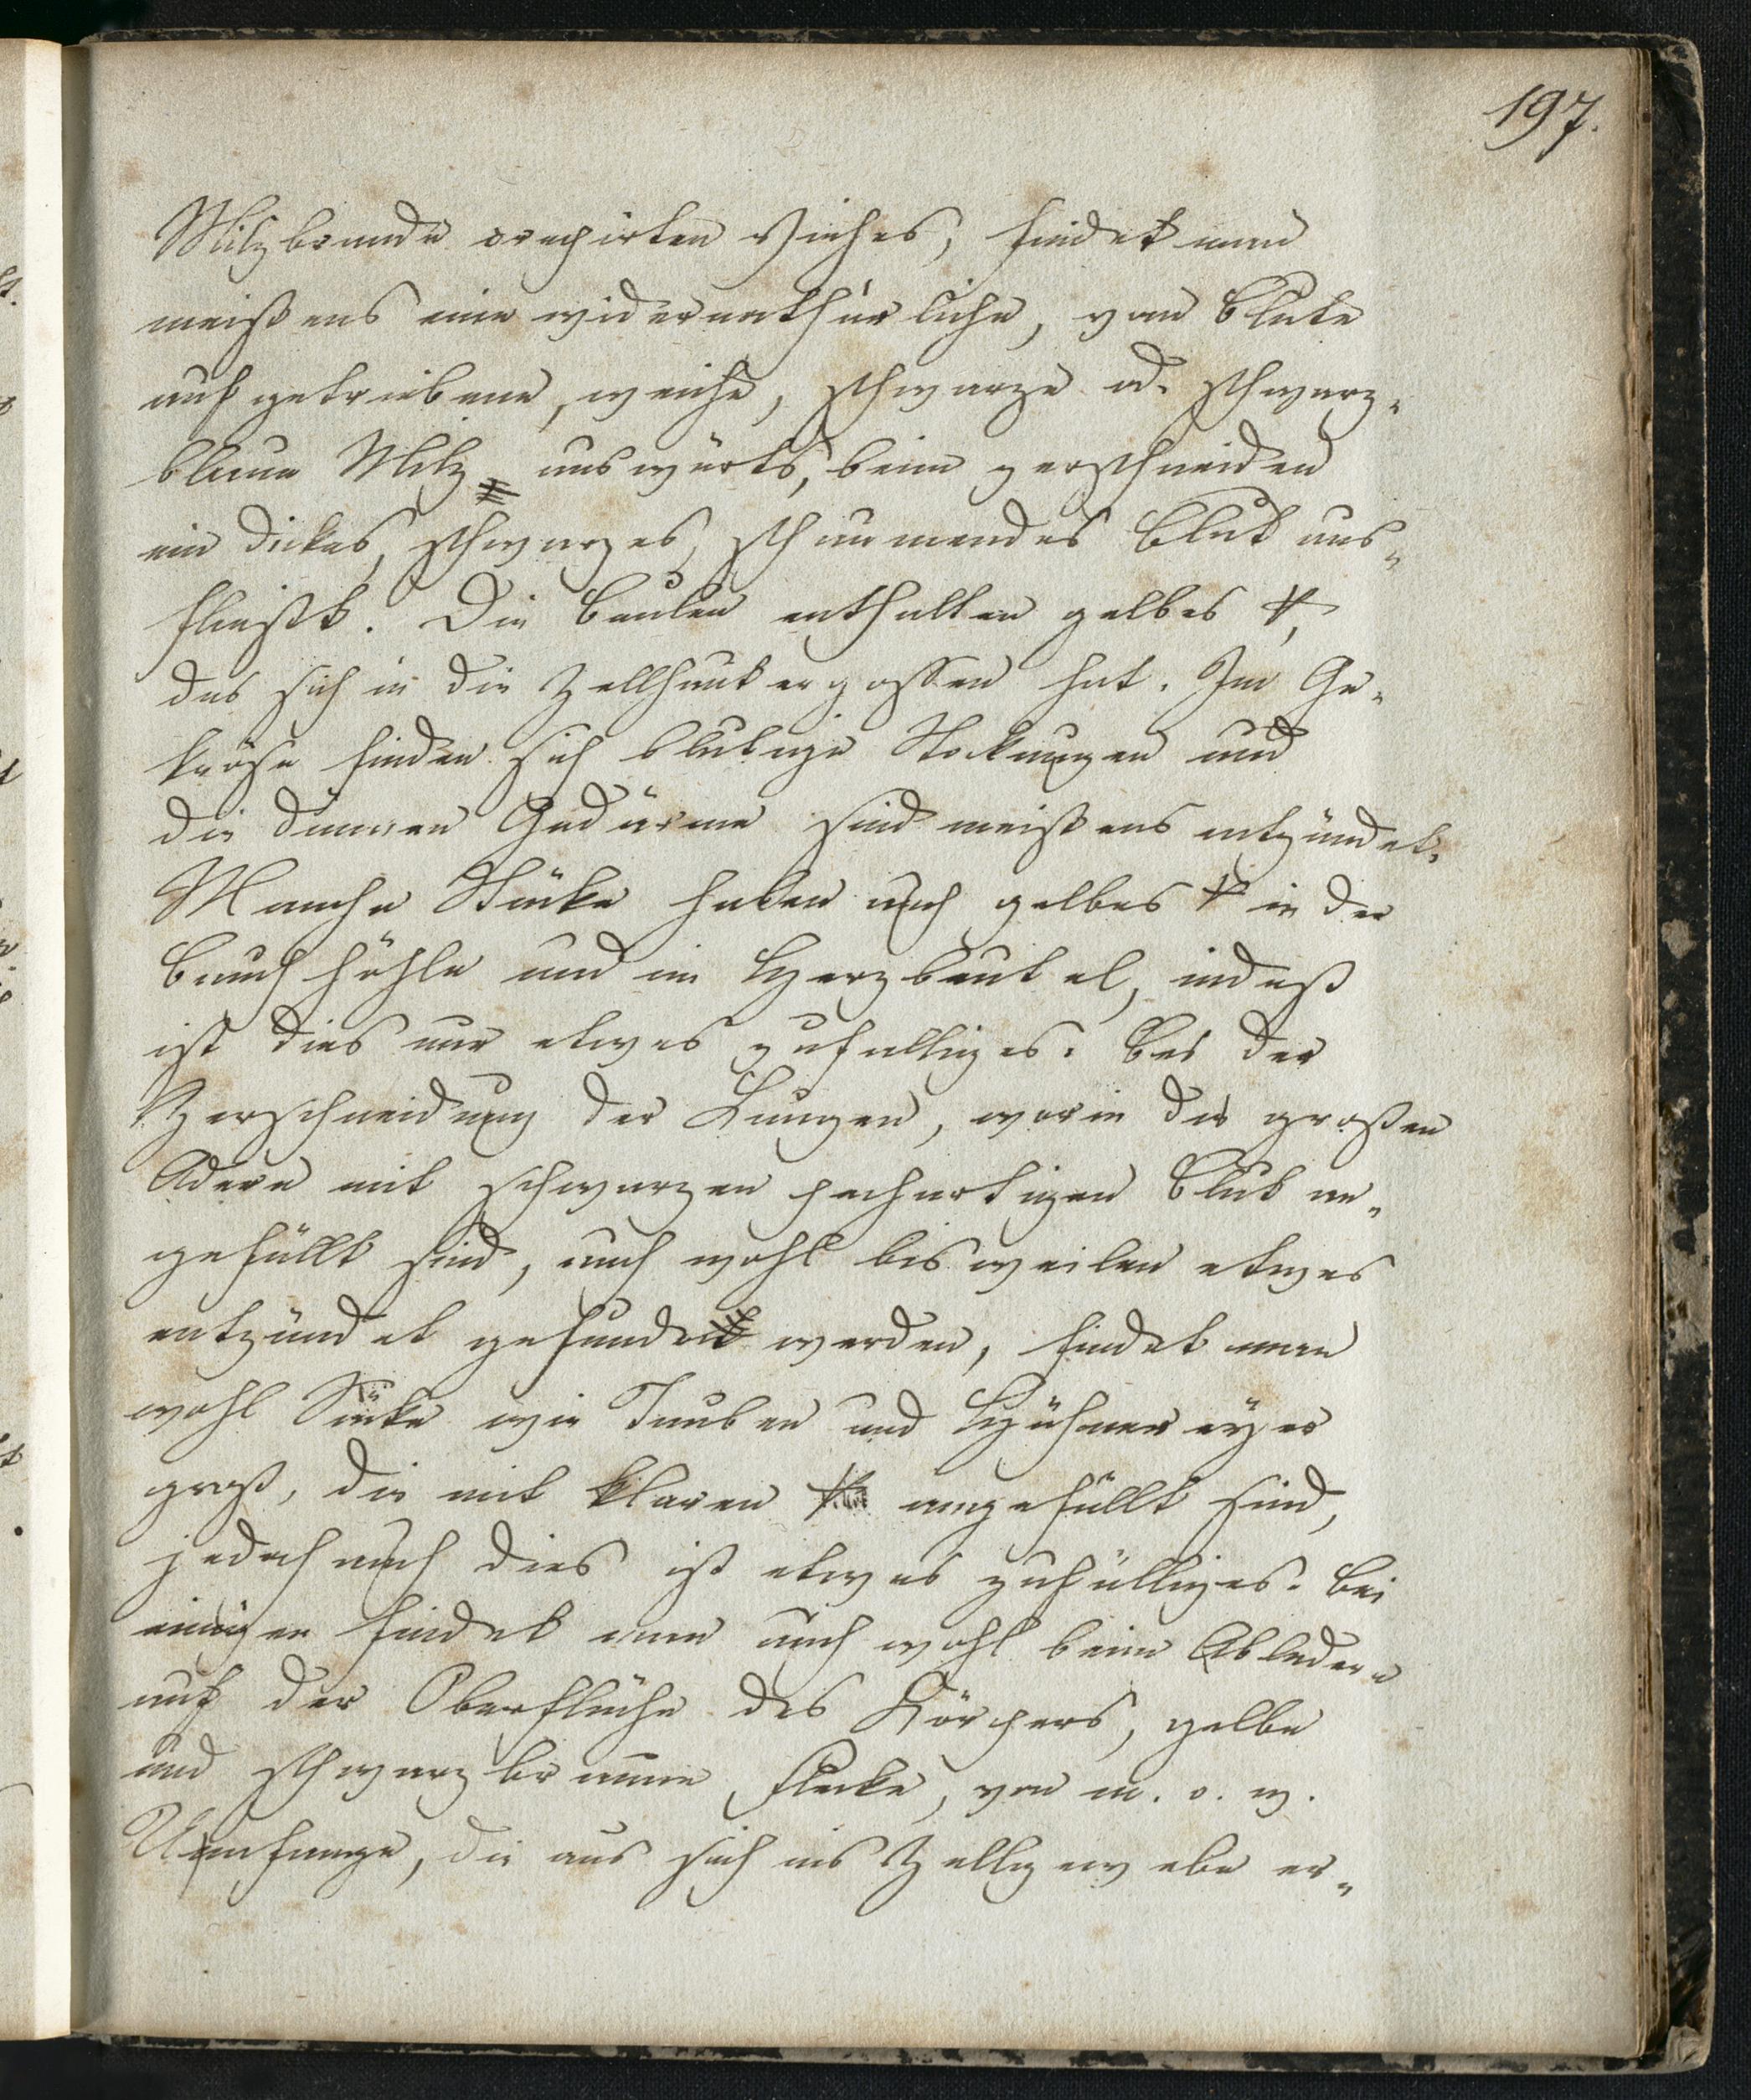 197.
Milzbrande crepirten Viehes, findet man
meistens eine widernathürliche, vom Blute
aufgetriebene, weiche, schwarze od. schwarz-
blaue Milz auswärts, beim zerschneiden
ein dickes, schwarzes, schäumendes Blut aus-
fliesst. Die Beulen enthalten gelbes
das sich in die Zellhaut ergossen hat. Im Ge-
kröse finden sich blutige Stockungen und
die dünnen Gedärme sind meistens entzündet.
Manche Stücke haben auch gelbes in der
Bauchhöhle und im Herzbeutel, indeß
ist dies nur etwas zufälliges. Bei der
Zerschneidung der Lungen, worin die großen
Adern mit schwarzen pechartigen Blut an-
gefüllt sind, auch wohl bisweilen etwas
entzündet gefunden werden, findet man
wohl Säcke wie Tauben und Hühnereyer
groß, die mit klaren angefüllt sind,
jedoch auch dies ist etwas zufälliges. Bei
einigen findet man auch wohl beim Abledern
auf der Oberfläche des Körpers, gelbe
und schwarzbraune Flecke, von m. o. w.
Umfange, die aus sich ins Zellgewebe er-